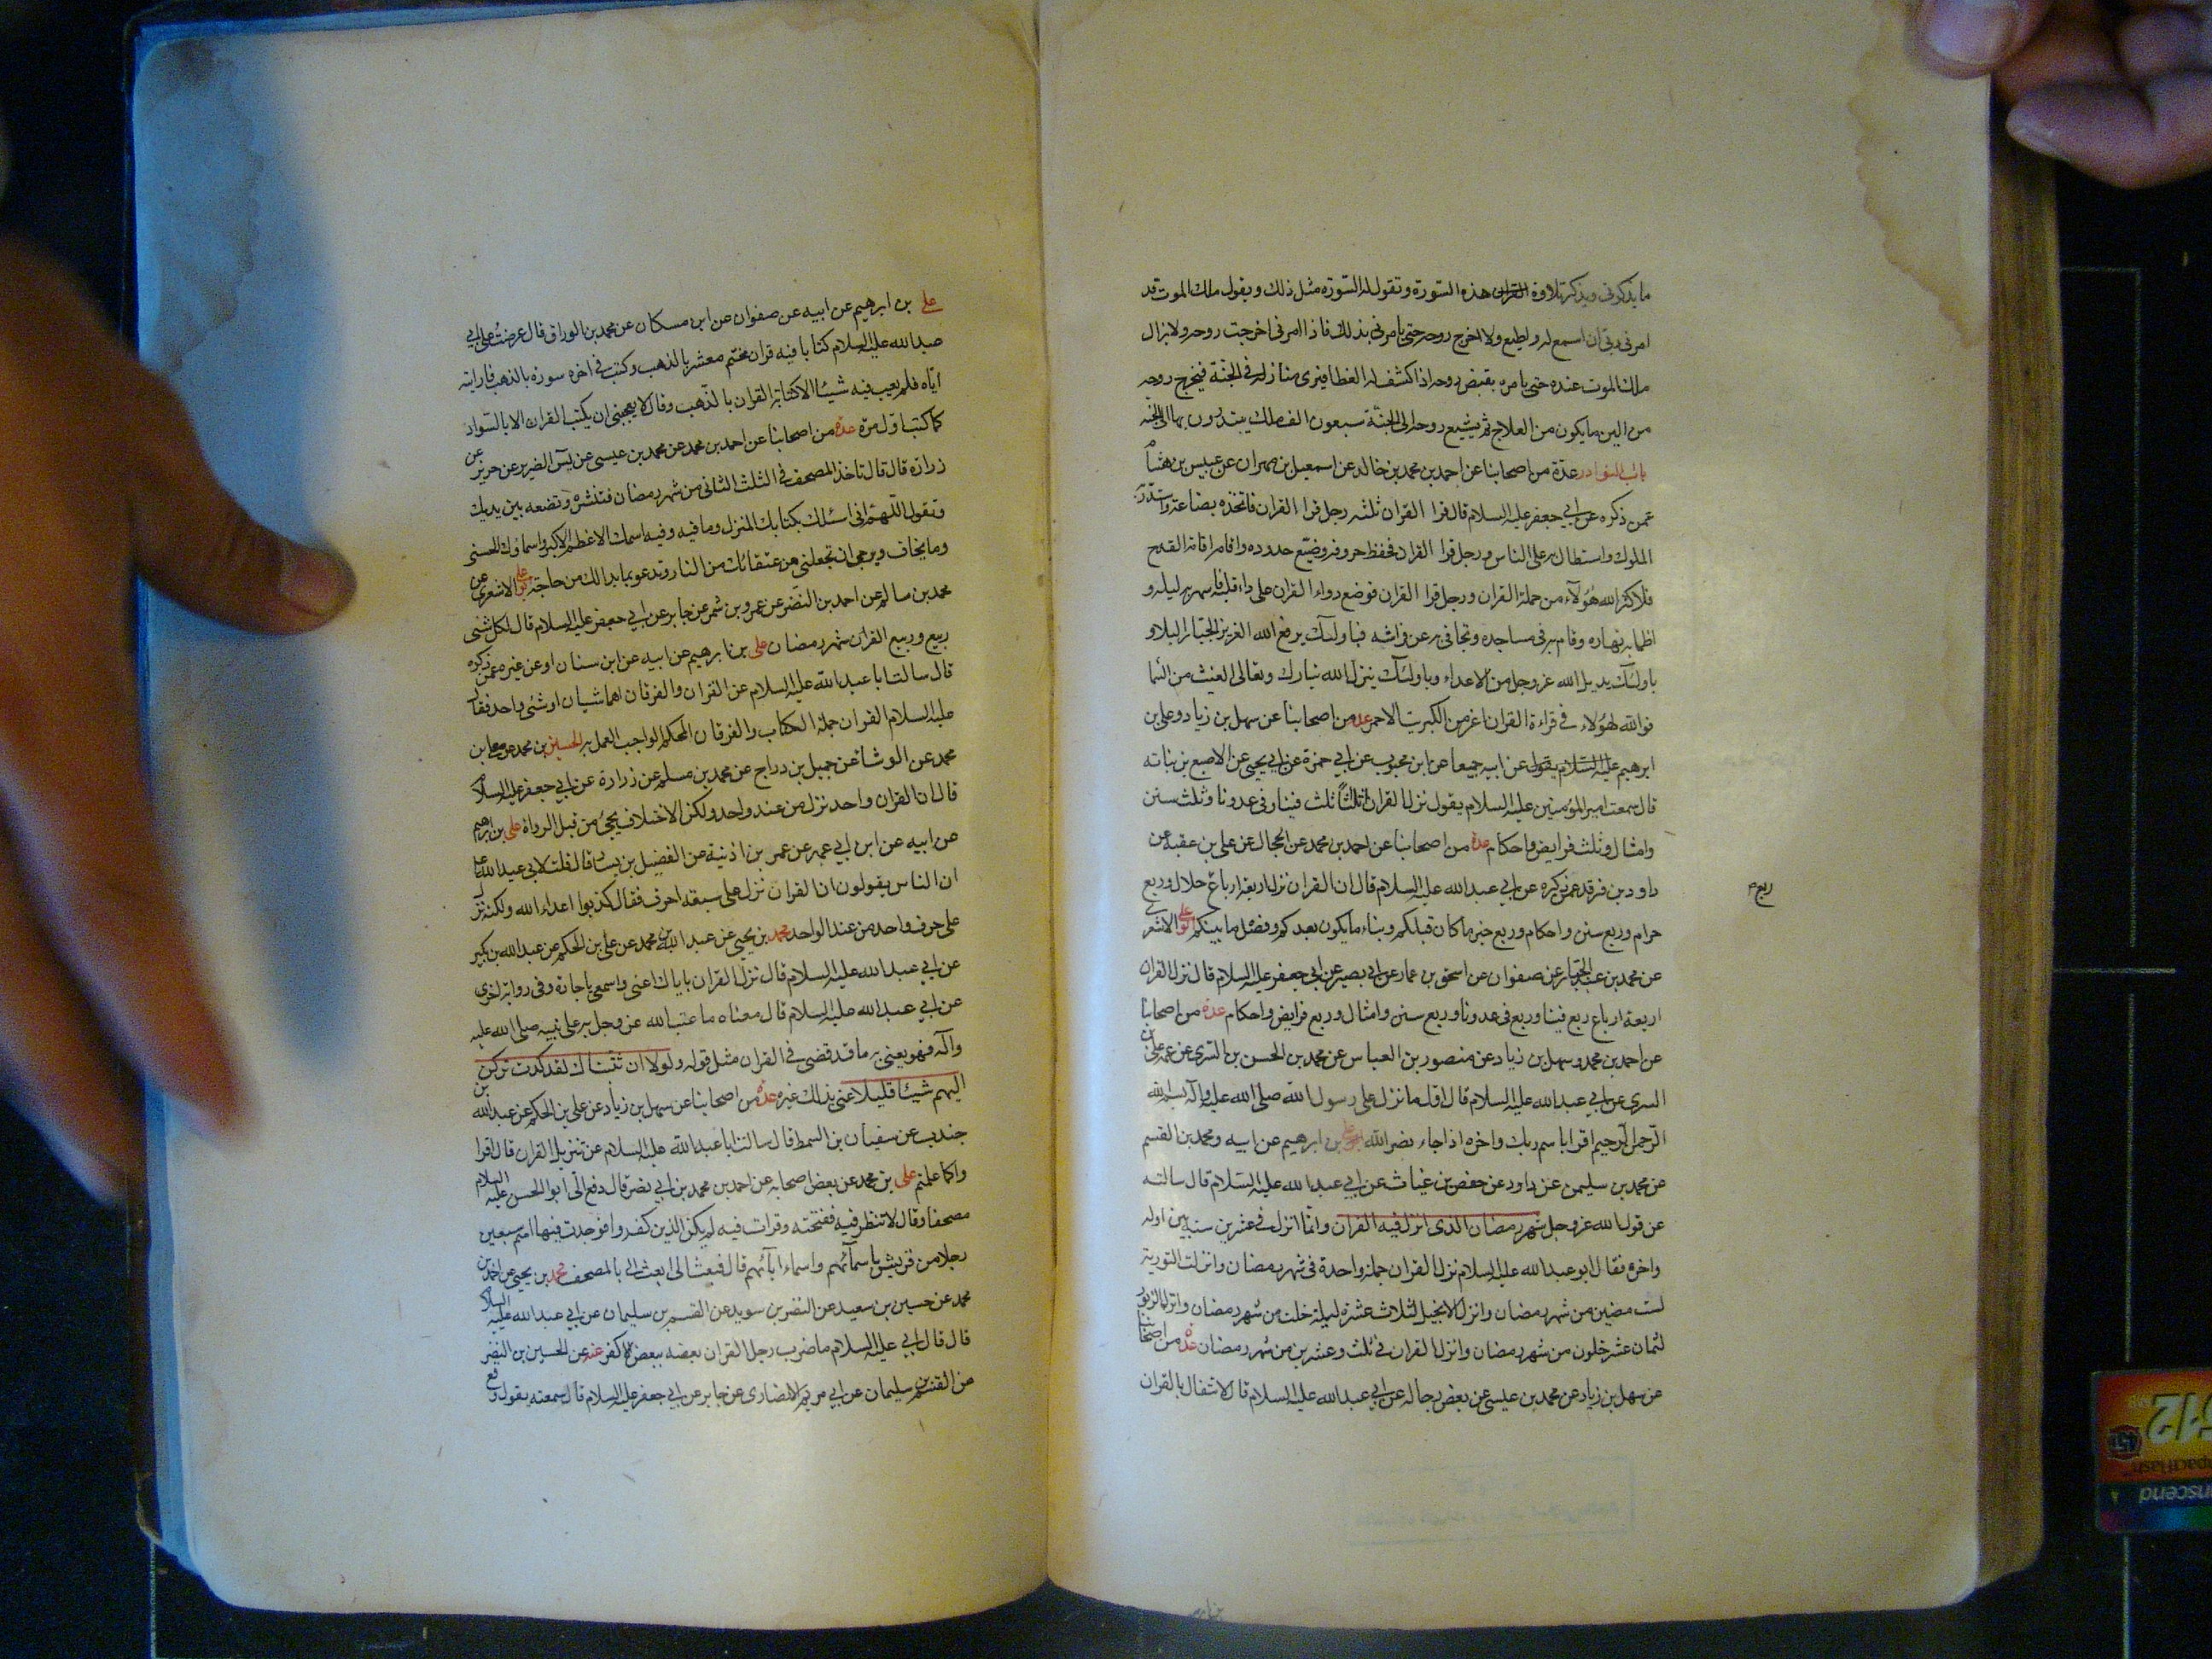 ما يذكرني ويذكر تلاوة القران هذه السورة وتقول له السورة مثل ذلك ويقول ملك الموت قد
امرني ربي ان اسمع له واطيع ولا اخرج روحه حتى يامرني بذلك فاذا امرني اخرجت روحه ولا يزال
ملك الموت عنده حتى يامره بقبض روحه اذا كشف له الغطا فيرى منازله في الجنة فيخرج روحه
من الين ما يكون من العلاج ثم يشيع روحه الى الجنة سبعون الف ملك يبتدرون بها الى الجنة
باب النوادر عدة من اصحابنا عن احمد بن محمد بن خالد عن اسمعيل بن مهران عن عبيس بن هشام
عمن ذكره عن ابي جعفر عليه السلام قال قرا القران ثلثه رجل قرا القران فاتخذه بضاعة واستدر به
الملوك واستطال به على الناس ورجل قرا القران فحفظ حروفه وضيع حدوده واقامه اقامة القدح
فلا كثر الله هؤلاء من حملة القران ورجل قرا القران فوضع دواء القران على داء قلبه فاسهر به ليله و
اظما به نهاره وقام به في مساجده وتجافى به عن فراشه فباولئك يدفع الله العزيز الجبار البلاو
باولئك يديل الله عز وجل من الاعداء وباولئك ينزل الله تبارك وتعالى الغيث من السما
فوالله لهؤلاء في قراءة القران اعز من الكبريت الاحمر عدة من اصحابنا عن سهل بن زياد وعلي بن
ابرهيم عليه السلام يقول عن ابيه جميعا عن ابن محبوب عن ابي حمزة عن ابي يحيى عن الاصبغ بن نباته
قال سمعت امير المؤمنين عليه السلام يقول نزل القران اثلاثا ثلث فينا وفي عدونا وثلث سنن
وامثال وثلث فرايض واحكام عدة من اصحابنا عن احمد بن محمد عن الحجال عن علي بن عقبه عن
داود بن فرقد عمن ذكره عن ابي عبد الله عليه السلام قال ان القران نزل اربعة ارباع حلال وربع
ربع م
حرام وربع سنن واحكام وربع خبر ما كان قبلكم ونباء ما يكون بعدكم وفصل ما بينكم ابو علي الاشعري
عن محمد بن عبد الجبار عن صفوان عن اسحق بن عمار عن ابي بصير عن ابي جعفر عليه السلام قال نزل القران
اربعة ارباع ربع فينا وربع في عدونا وربع سنن وامثال وربع فرايض واحكام عدة من اصحابنا
عن احمد بن محمد وسهل بن زياد عن منصور بن العباس عن محمد بن الحسن بن السري عن عمه علي بن
السري عن ابي عبد الله عليه السلام قال اول ما نزل على رسول الله صلى الله عليه واله بسم الله
الرحمن الرحيم اقرا باسم ربك واخره اذا جاء نصر الله علي بن ابرهيم عن ابيه ومحمد بن القسم
عن محمد بن سليمن عن داود عن حفص بن غياث عن ابي عبد الله عليه السلام قال سالته
عن قول الله عز وجل شهر رمضان الذي انزل فيه القران وانما انزل في عشرين سنة بين اوله
واخره فقال ابو عبد الله عليه السلام نزل القران جملة واحدة في شهر رمضان وانزلت التورية
لست مضين من شهر رمضان وانزل الانجيل لثلاث عشرة ليلة خلت من شهر رمضان وانزل الزبور
لثمان عشر خلون من شهر رمضان وانزل القران في ثلث وعشرين من شهر رمضان عدة من اصحابنا
عن سهل بن زياد عن محمد بن عيسى عن بعض رجاله عن ابي عبد الله عليه السلام قال لا تتفال بالقران
علي بن ابرهيم عن ابيه عن صفوان عن ابن مسكان عن محمد بن الوراق قال عرضت على ابي
عبد الله عليه السلام كتابا فيه قران مختم معشر بالذهب وكتب في اخره سورة بالذهب فاريته
اياه فلم يعب فيه شيئا الا كتابة القران بالذهب وقال لا يعجبني ان يكتب القران الا بالسواد
كما كتب اول مرة عدة من اصحابنا عن احمد بن محمد عن محمد بن عيسى عن يس الضرير عن حريز عن
زرارة قال قال تاخذ المصحف في الثلث الثاني من شهر رمضان فتنشره وتضعه بين يديك
وتقول اللهم اني اسئلك بكتابك المنزل وما فيه وفيه اسمك الاعظم الاكبر واسماؤك الحسنى
وما يخاف ويرجى ان تجعلني من عتقائك من النار وتدعو بما بدا لك من حاجة ابو علي الاشعري عن
محمد بن سالم عن احمد بن النضر عن عمرو بن شمر عن جابر عن ابي جعفر عليه السلام قال لكل شئ
ربيع وربيع القران شهر رمضان علي بن ابرهيم عن ابيه عن ابن سنان او عن غيره عمن ذكره
قال سالت ابا عبد الله عليه السلام عن القران والفرقان اهما شيئان او شئ واحد فقال
عليه السلام القران جملة الكتاب والفرقان المحكم الواجب العمل به الحسين بن محمد عن معلى بن
محمد عن الوشا عن جميل بن دراج عن محمد بن مسلم عن زرارة عن ابي جعفر عليه السلام
قال ان القران واحد نزل من عند واحد ولكن الاختلاف يجئ من قبل الرواة علي بن ابرهيم
عن ابيه عن ابن ابي عمير عن عمر بن اذينة عن الفضيل بن يسار قال قلت لابي عبد الله ع
ان الناس يقولون ان القران نزل على سبعة احرف فقال كذبوا اعداء الله ولكنه نزل
على حرف واحد من عند الواحد محمد بن يحيى عن عبد الله بن محمد عن علي بن الحكم عن عبد الله بن بكير
عن ابي عبد الله عليه السلام قال نزل القران باياك اعني واسمعي يا جارة وفي رواية اخرى
عن ابي عبد الله عليه السلام قال معناه ما عتب الله عز وجل به على نبيه صلى الله عليه
واله فهو يعني به ما قد قضى في القران مثل قوله ولولا ان ثبتناك لقد كدت تركن
اليهم شيئا قليلا عنى بذلك غيره عدة من اصحابنا عن سهل بن زياد عن علي بن الحكم عن عبد الله بن
جندب عن سفيان بن السمط قال سالت ابا عبد الله عليه السلام عن تنزيل القران قال اقرا
واكما علمتم علي بن محمد عن بعض اصحابه عن احمد بن محمد بن ابي نصر قال دفع الى ابو الحسن عليه السلام
مصحفا وقال لا تنظر فيه ففتحته وقرات فيه لم يكن الذين كفروا فوجدت فيها اسم سبعين
رجلا من قريش باسمائهم واسماء ابائهم قال فبعث الى ابعث الي بالمصحف محمد بن يحيى عن احمد بن
محمد عن حسين بن سعيد عن النضر بن سويد عن القسم بن سليمان عن ابي عبد الله عليه السلام
قال قال ابي عليه السلام ما ضرب رجل القران بعضه ببعض الا كفر عنه عن الحسين بن النضر
عن القسم بن سليمان عن ابي مريم الانصاري عن جابر عن ابي جعفر عليه السلام قال سمعته يقول وقع
512
Transcend